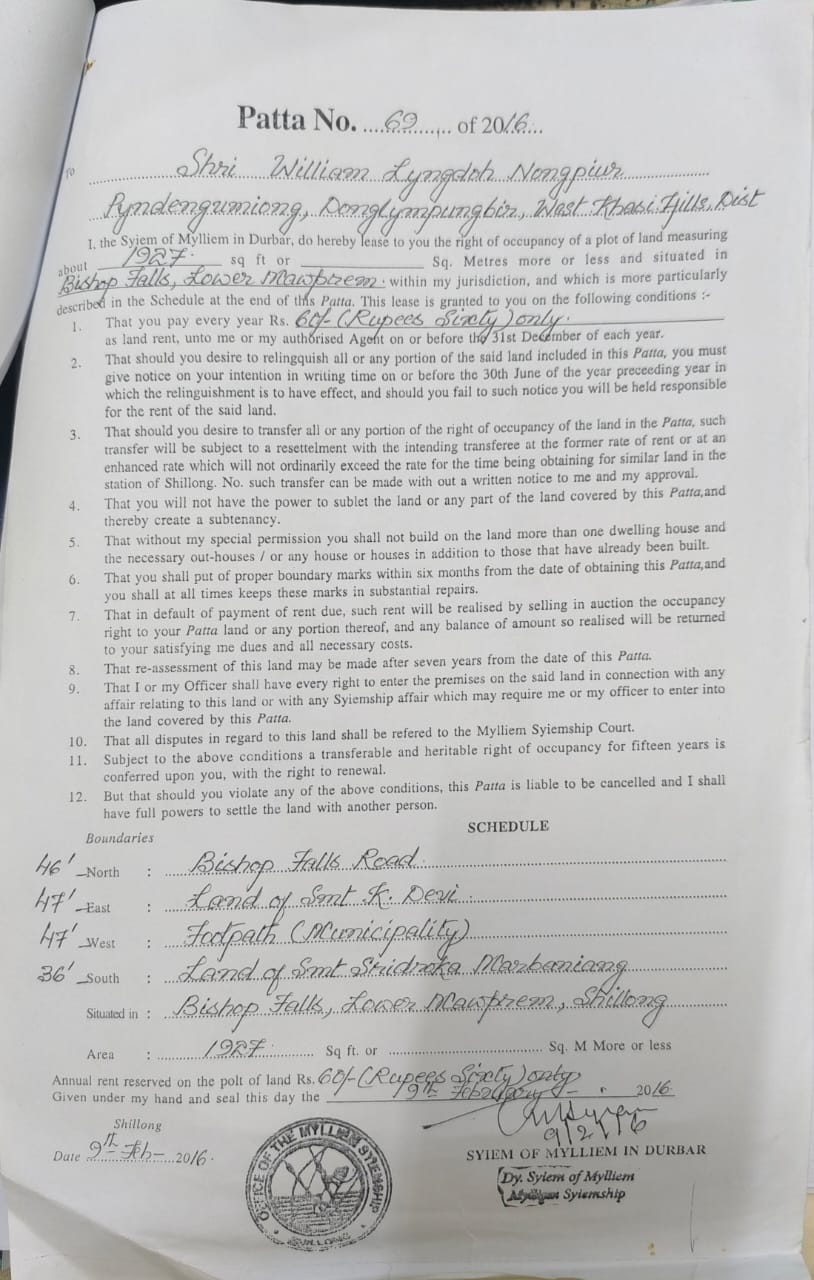 Patta No. ....69...... of 2016...
To ..........Shri William Lyngdoh Nongpiur..............
Pyndengumiong, Donglympungbir, West Khasi Hills, Dist
I, the Syiem of Mylliem in Durbar, do hereby lease to you the right of occupancy of a plot of land measuring
about 1927. sq ft or ____________ Sq. Metres more or less and situated in
Bishop Falls, Lower Mawprem. within my jurisdiction, and which is more particularly
described in the Schedule at the end of this Patta. This lease is granted to you on the following conditions :-
1. That you pay every year Rs. 60/- (Rupees Sixty) only.
as land rent, unto me or my authorised Agent on or before the 31st December of each year.
2. That should you desire to relingquish all or any portion of the said land included in this Patta, you must
give notice on your intention in writing time on or before the 30th June of the year preceeding year in
which the relinguishment is to have effect, and should you fail to such notice you will be held responsible
for the rent of the said land.
3. That should you desire to transfer all or any portion of the right of occupancy of the land in the Patta, such
transfer will be subject to a resettelment with the intending transferee at the former rate of rent or at an
enhanced rate which will not ordinarily exceed the rate for the time being obtaining for similar land in the
station of Shillong. No. such transfer can be made with out a written notice to me and my approval.
4. That you will not have the power to sublet the land or any part of the land covered by this Patta,and
thereby create a subtenancy.
5. That without my special permission you shall not build on the land more than one dwelling house and
the necessary out-houses / or any house or houses in addition to those that have already been built.
6. That you shall put of proper boundary marks within six months from the date of obtaining this Patta,and
you shall at all times keeps these marks in substantial repairs.
7. That in default of payment of rent due, such rent will be realised by selling in auction the occupancy
right to your Patta land or any portion thereof, and any balance of amount so realised will be returned
to your satisfying me dues and all necessary costs.
8. That re-assessment of this land may be made after seven years from the date of this Patta.
9. That I or my Officer shall have every right to enter the premises on the said land in connection with any
affair relating to this land or with any Syiemship affair which may require me or my officer to enter into
the land covered by this Patta.
10. That all disputes in regard to this land shall be refered to the Mylliem Syiemship Court.
11. Subject to the above conditions a transferable and heritable right of occupancy for fifteen years is
conferred upon you, with the right to renewal.
12. But that should you violate any of the above conditions, this Patta is liable to be cancelled and I shall
have full powers to settle the land with another person.
SCHEDULE
Boundaries
46' North : Bishop Falls Road.
47' East : Land of Smt K. Devi.
47' West : Footpath (Municipality)
36' South : Land of Smt Marbaniang
Situated in : Bishop Falls, Lower Mawprem, Shillong
Area : 1927 Sq ft. or .............. Sq. M More or less
Annual rent reserved on the polt of land Rs. 60/- (Rupees Sixty) only
Given under my hand and seal this day the 9th February - 2016
9/2/16
Shillong
Date 9th Feb- 2016.
SYIEM OF MYLLIEM IN DURBAR
Dy. Syiem of Mylliem
Syiemship
OFFICE OF THE MYLLIEM SYIEMSHIP
SHILLONG